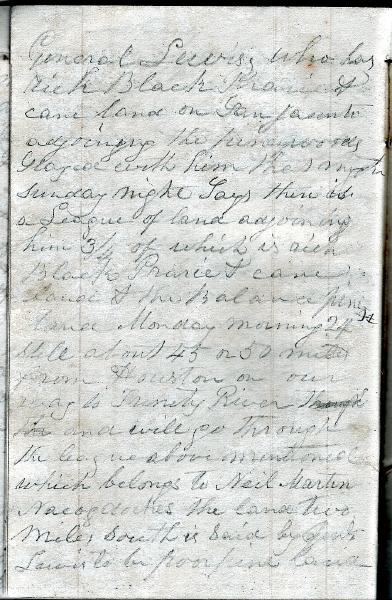 General Lewis, who has
rich Black Prairie &
cane land on San Jacinto
adjoining the pineywoods
Stayed with him the night
Sunday night Says there is
a League of land adjoining
him 3/4 of which is rich
Black Prarie & cane
land & the Balance pine
land Monday morning 24
still about 45 or 50 miles
from Houston on our
way to Trinity River
and will go through
the league above mentioned
which belongs to Neil Martin
Nacogdoches the land two
miles South is Said by Genl
Lewis to be poor pine land